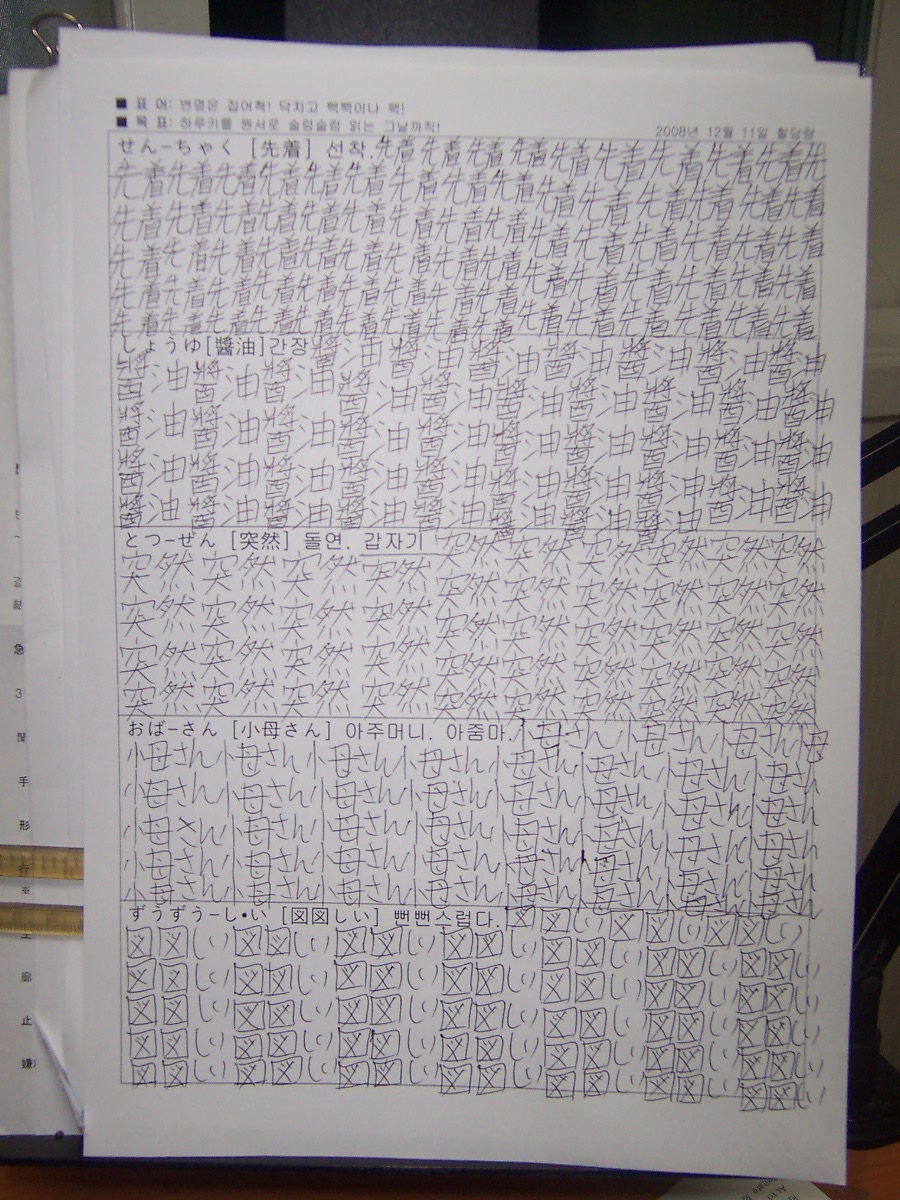 ■ 표 어: 변명은 집어쳐! 닥치고 빽빽이나 핵!
■ 목 표: 하루키를 원서로 술렁술렁 읽는 그날까직!
2008년 12월 11일 할당량
せん-ちゃく [先着] 선착. 先着先着先着先着先着先着先着先着先着先
先着先着先着先着先着先着先着先着先着先着先着先着先着先着先着
先着先着先着先着先着先着先着先着先着先着先着先着先着先着先着
先着先着先着先着先着先着先着先着先着先着先着先着先着先着先着
先着先着先着先着先着先着先着先着先着先着先着先着先着先着先着
先着先着先着先着先着先着先着先着先着先着先着先着先着先着先着
しょうゆ[醬油]간장 醬油醬油醬油醬油醬油醬油醬油
醬油醬油醬油醬油醬油醬油醬油醬油醬油醬油
醬油醬油醬油醬油醬油醬油醬油醬油醬油醬油
醬油醬油醬油醬油醬油醬油醬油醬油醬油醬油
醬油醬油醬油醬油醬油醬油醬油醬油醬油醬油
とつ-ぜん [突然] 돌연. 갑자기 突然突然突然突然突然突然
突然突然突然突然突然突然突然突然突然突然
突然突然突然突然突然突然突然突然突然突然
突然突然突然突然突然突然突然突然突然突然
突然突然突然突然突然突然突然突然突然突然
おば-さん [小母さん] 아주머니. 아줌마. 小母さん小母さん小母さん小母
小母さん小母さん小母さん小母さん小母さん小母さん小母さん小母さん
小母さん小母さん小母さん小母さん小母さん小母さん小母さん小母さん
小母さん小母さん小母さん小母さん小母さん小母さん小母さん小母さん
小母さん小母さん小母さん小母さん小母さん小母さん小母さん小母さん
小母さん小母さん小母さん小母さん小母さん小母さん小母さん小母さん
ずうずう-し•い [図図しい] 뻔뻔스럽다. 図図しい図図図図しい
図図しい図図しい図図しい図図しい図図しい図図しい図図しい
図図しい図図しい図図しい図図しい図図しい図図しい図図しい
図図しい図図しい図図しい図図しい図図しい図図しい図図しい
図図しい図図しい図図しい図図しい図図しい図図しい図図しい
図図しい図図しい図図しい図図しい図図しい図図しい図図しい
急
3
手
形
※
止